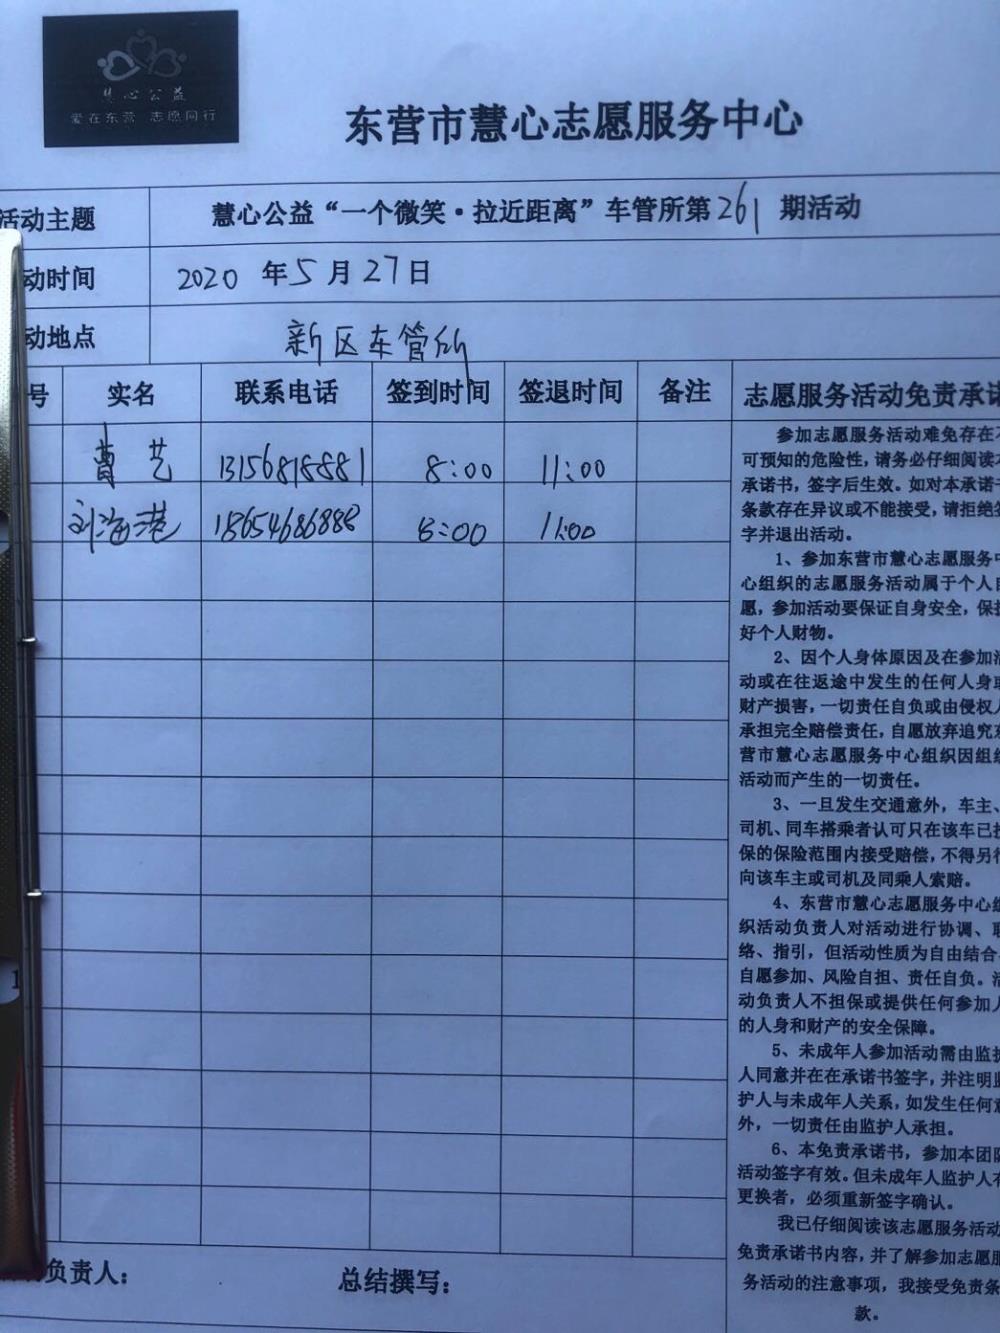 慧心公益
爱在东营 志愿同行
东营市慧心志愿服务中心
活动主题 慧心公益“一个微笑·拉近距离”车管所第261期活动
动时间 2020 年5月27日
动地点 新区车管所
号 实名 联系电话 签到时间 签退时间 备注
曹艺 13156818881 8:00 11:00
刘海港 18654686888 8:00 11:00
志愿服务活动免责承诺
参加志愿服务活动难免存在不
可预知的危险性,请务必仔细阅读本
承诺书,签字后生效。如对本承诺书
条款存在异议或不能接受,请拒绝签
字并退出活动。
1、参加东营市慧心志愿服务中
心组织的志愿服务活动属于个人自
愿,参加活动要保证自身安全,保护
好个人财物。
2、因个人身体原因及在参加活
动或在往返途中发生的任何人身或
财产损害,一切责任自负或由侵权人
承担完全赔偿责任,自愿放弃追究东
营市慧心志愿服务中心组织因组织
活动而产生的一切责任。
3、一旦发生交通意外,车主、
司机、同车搭乘者认可只在该车已投
保的保险范围内接受赔偿,不得另行
向该车主或司机及同乘人索赔。
4、东营市慧心志愿服务中心组
织活动负责人对活动进行协调、联
络、指引,但活动性质为自由结合、
自愿参加、风险自担、责任自负。活
动负责人不担保或提供任何参加人
的人身和财产的安全保障。
5、未成年人参加活动需由监护
人同意并在在承诺书签字,并注明监
护人与未成年人关系,如发生任何意
外,一切责任由监护人承担。
6、本免责承诺书,参加本团队
活动签字有效。但未成年人监护人有
更换者,必须重新签字确认。
我已仔细阅读该志愿服务活动
免责承诺书内容,并了解参加志愿服
务活动的注意事项,我接受免责条
款。
负责人: 总结撰写: